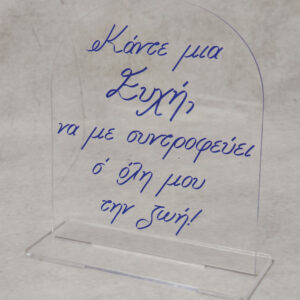 Κάντε μια
Ευχή,
να με συντροφεύει
σ' όλη μου
την ζωή!